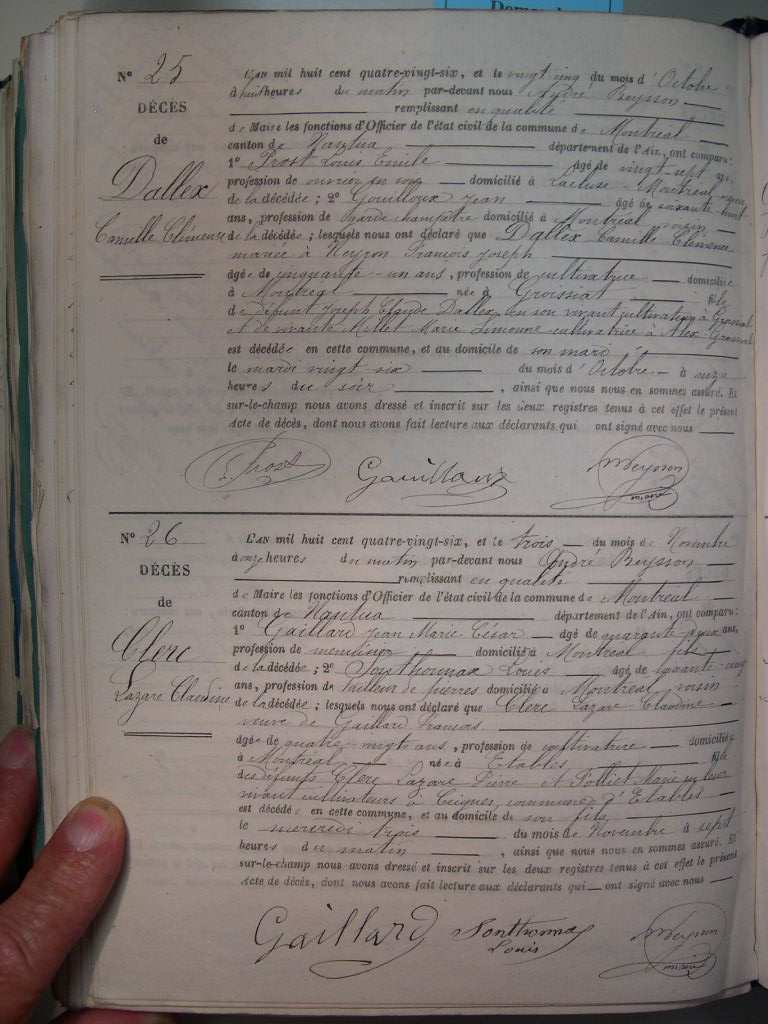 Nº 25
DÉCÈS
de
Dallex
Camille Clémence
L'AN mil huit cent quatre-vingt-six, et le vingt cinq du mois d'Octobre
à huit heures du matin par-devant nous André Reysson
remplissant en qualité
de Maire les fonctions d'Officier de l'état civil de la commune de Montréal
canton de Nantua département de l'Ain, ont comparu :
1º Prost Louis Emile âgé de vingt-sept ans,
profession de ouvrier en domicilié à Lacluse - Montréal
de la décédée ; 2º Gouilloux Jean âgé de soixante huit
ans, profession de garde champêtre domicilié à Montréal voisin
de la décédée ; lesquels nous ont déclaré que Dallex Camille Clémence
mariée à François Joseph
âgée de cinquante-un ans, profession de cultivatrice domiciliée
à Montréal née à Groissiat fille
de défunt Joseph Claude Dallex, en son vivant cultivateur à
et de vivante Millet Marie cultivatrice à
est décédée en cette commune, et au domicile de son mari
le mardi vingt six du mois d'Octobre à onze
heures du soir , ainsi que nous nous en sommes assuré. Et
sur-le-champ nous avons dressé et inscrit sur les deux registres tenus à cet effet le présent
Acte de décès, dont nous avons fait lecture aux déclarants qui ont signé avec nous
Prost Gouilloux Reysson
maire
Nº 26
DÉCÈS
de
Clerc
Lazare Claudine
L'AN mil huit cent quatre-vingt-six, et le trois du mois de Novembre
à onze heures du matin par-devant nous André Reysson
remplissant en qualité
de Maire les fonctions d'Officier de l'état civil de la commune de Montréal
canton de Nantua département de l'Ain, ont comparu :
1º Gaillard Jean Marie César âgé de quarante deux ans,
profession de menuisier domicilié à Montréal fils
de la décédée ; 2º Sonthonnax Louis âgé de
ans, profession de tailleur de pierres domicilié à Montréal voisin
de la décédée ; lesquels nous ont déclaré que Clerc Lazare Claudine
veuve de Gaillard François
âgée de quatre-vingts ans, profession de cultivatrice domiciliée
à Montréal née à Etables fille
des défunts Clerc Lazare Pierre et Marie en leur
vivant cultivateurs à Ceignes, commune d'Etables
est décédée en cette commune, et au domicile de son fils
le mercredi trois du mois de Novembre à sept
heures du matin , ainsi que nous nous en sommes assuré. Et
sur-le-champ nous avons dressé et inscrit sur les deux registres tenus à cet effet le présent
Acte de décès, dont nous avons fait lecture aux déclarants qui ont signé avec nous
Gaillard Sonthonnax Reysson
Louis maire